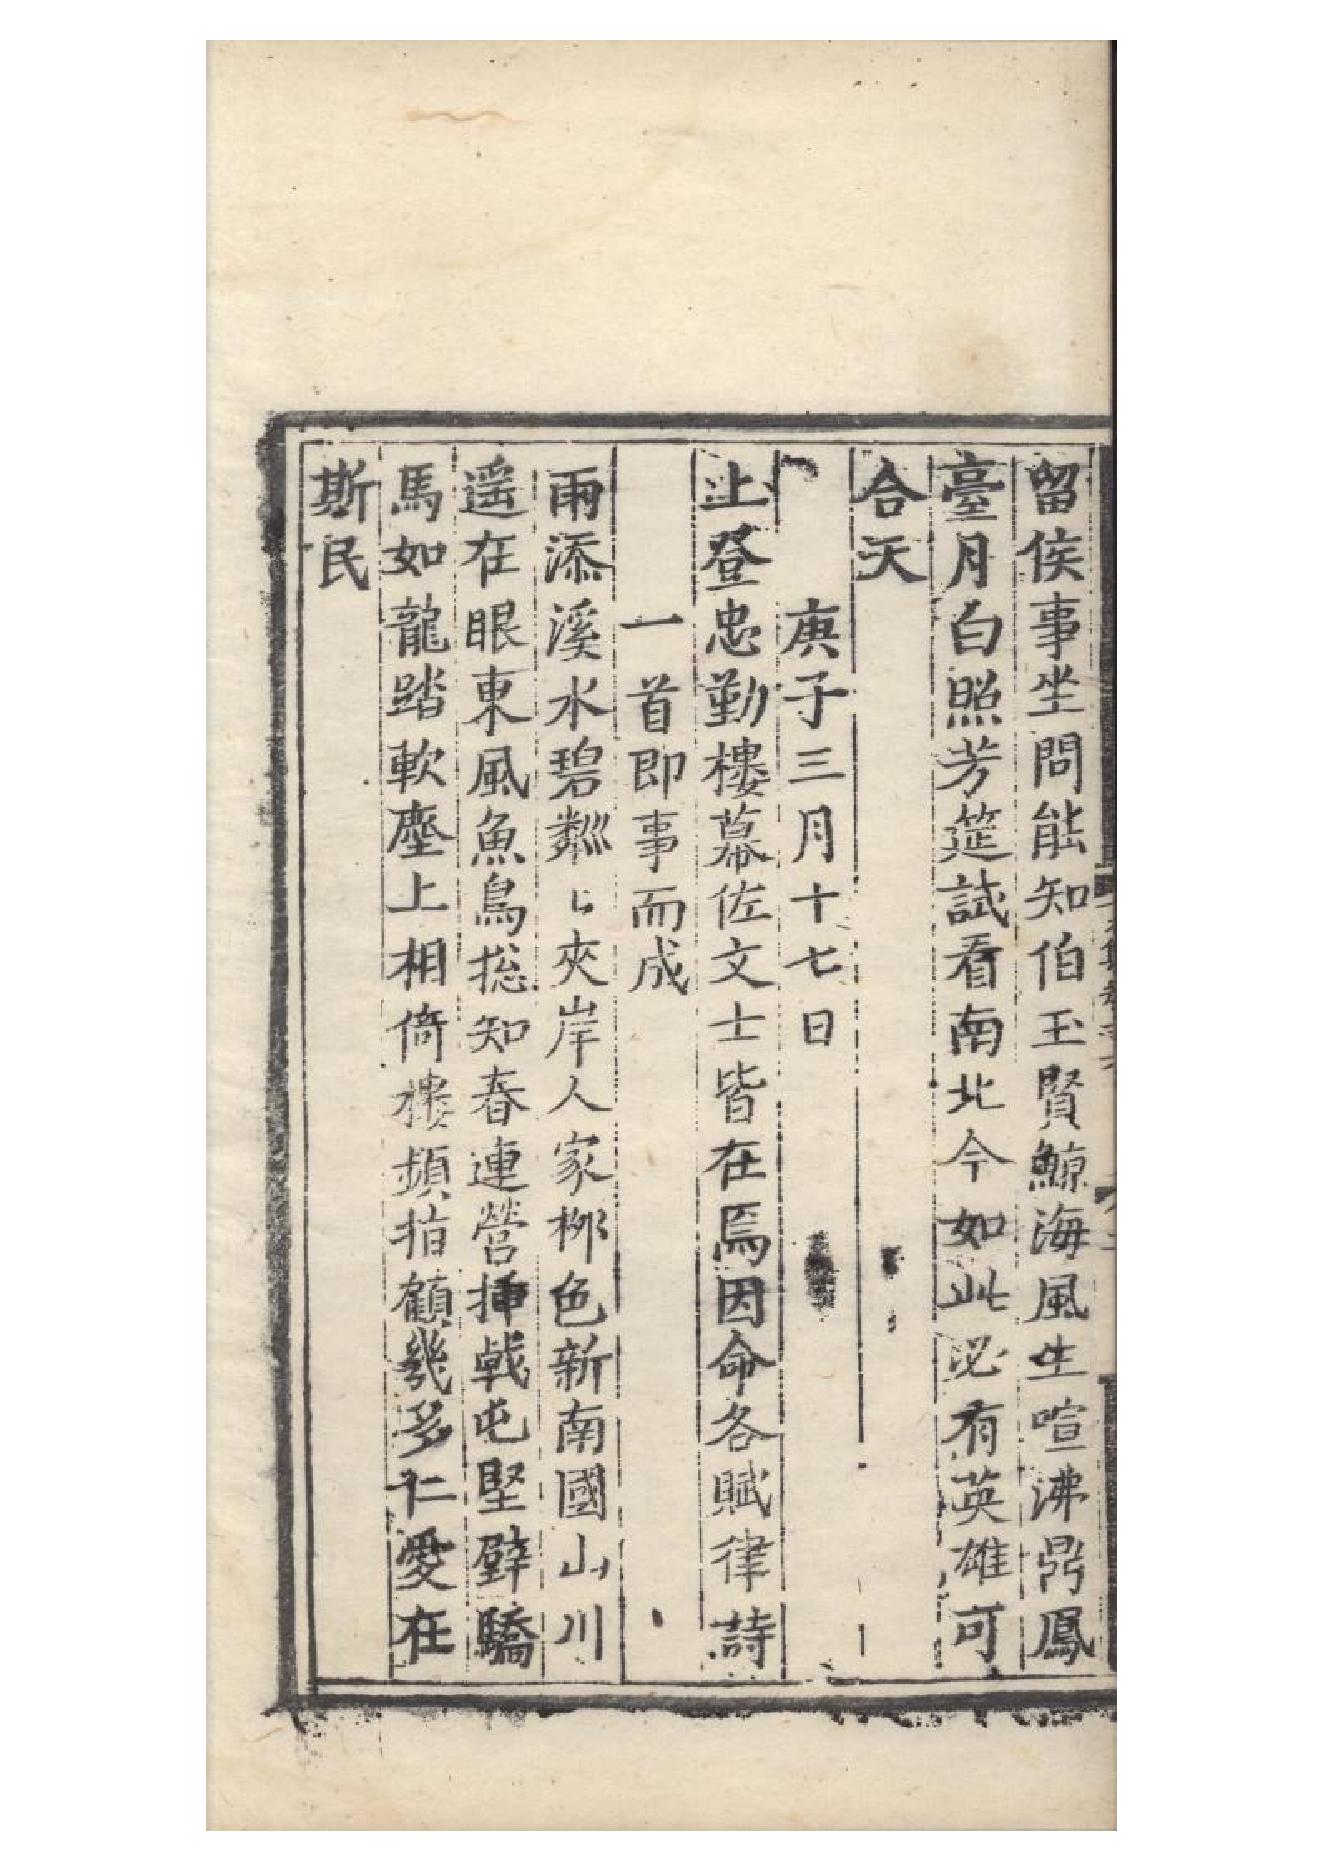 留侯事坐問能知伯玉賢鯨海風生喧沸鼎鳳
臺月白照芳筵試看南北今如此必有英雄可
合天
庚子三月十七日
上登忠勤樓幕佐文士皆在焉因命各賦律詩
一首即事而成
雨添溪水碧粼〻夾岸人家柳色新南國山川
遥在眼東風魚鳥揔知春連營挿戟屯堅壁驕
馬如龍踏軟塵上相倚樓頻指顧幾多仁愛在
斯民